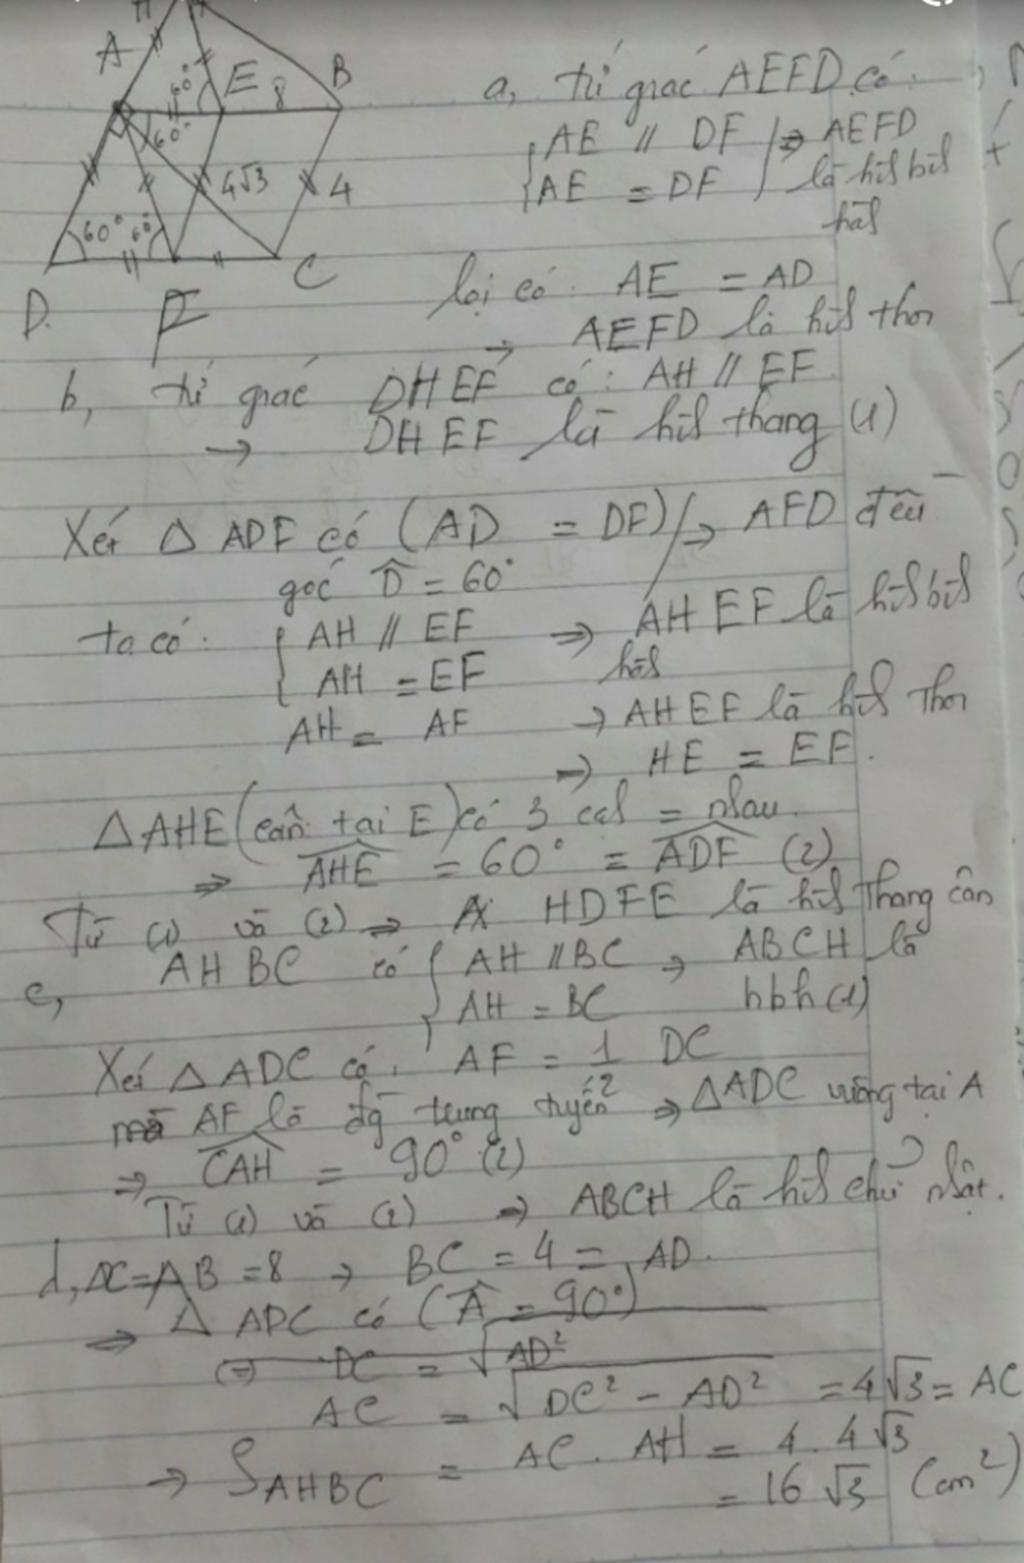 H
A
E 8 B
60°
60°
4√3 4
60° 60°
D. F C
a, tứ giác AEFD có:
{AE // DF
{AE = DF
⇒ AEFD là hìh bìh hàh
lại có: AE = AD
→ AEFD là hìh thoi
b, tứ giác DHEF có: AH // EF
→ DHEF là hìh thang (1)
Xét △ ADF có (AD = DF) ⇒ AFD đều
góc D̂ = 60°
ta có: { AH // EF ⇒ AHEF là hìh bìh hàh
{ AH = EF
AH = AF → AHEF là hìh thoi
⇒ HE = EF.
△AHE (cân tại E) có 3 cạh = nhau.
⇒ AHE = 60° = ADF (2)
Từ (1) và (2) ⇒ HDFE là hìh thang cân
c, AHBC có { AH // BC ⇒ ABCH là
{ AH = BC hbh (1)
Xét △ ADC có: AF = 1/2 DC
mà AF là đg trung tuyến ⇒ △ADC vuông tại A
⇒ CAH = 90° (2)
Từ (1) và (2) → ABCH là hìh chữ nhật.
d, DC=AB =8 → BC = 4 = AD.
⇒ △ ADC có (Â = 90°)
(=) DC = √AD²
AC = √DC² - AD² = 4√3 = AC
→ SAHBC = AC. AH = 4. 4√3
= 16√3 (cm²)